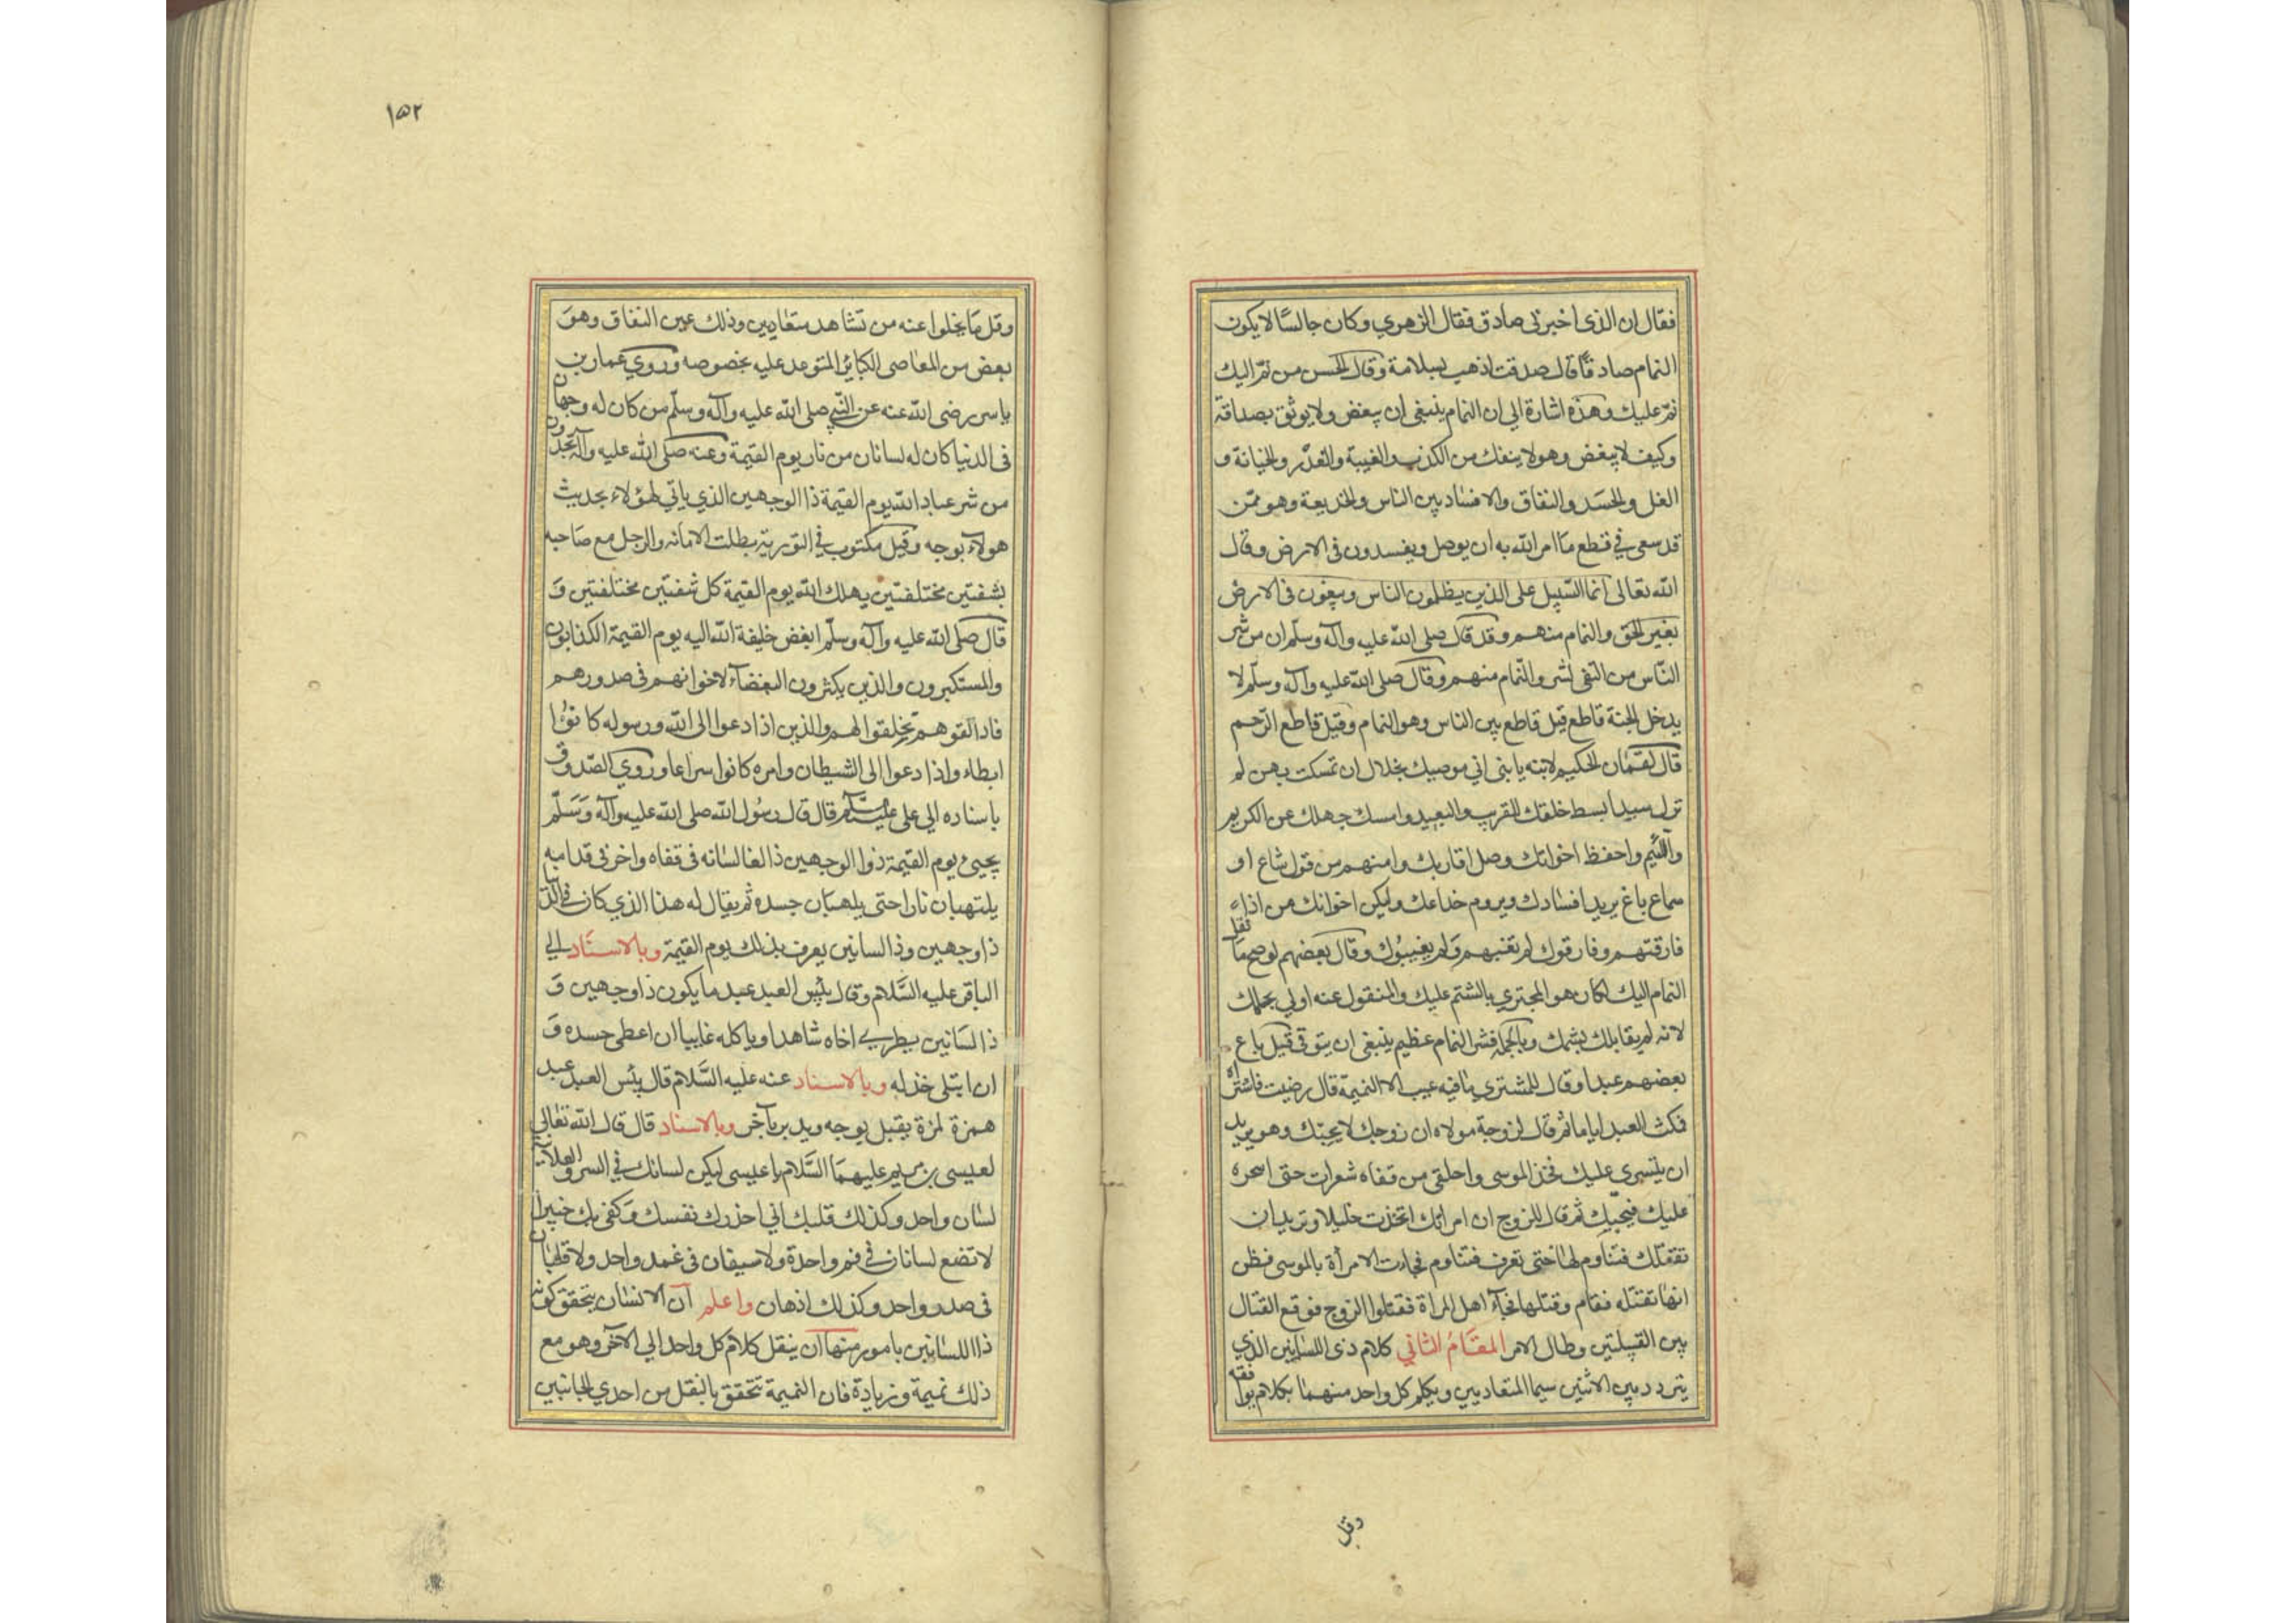 فقال ان الذى اخبرنى صادق فقال الزهري وكان جالسًا لا يكون
النمام صادقًا قال صدقت اذهب بسلامة وقال الحسن من نمّ اليك
نمّ عليك وهذه اشارة الى ان النمام ينبغى ان يبغض ولا يوثق بصداقته
وكيف لا يبغض وهو لا ينفك من الكذب والغيبة والغدر والخيانة و
الغل والحسد والنفاق والافساد بين الناس والخديعة وهو ممّن
قد سعى في قطع ما امر الله به ان يوصل ويفسدون فى الارض وقال
الله تعالى انما السّبيل على الذين يظلمون الناس ويبغون فى الارض
بغير الحق والنمام منهم وقد قال صلى الله عليه وآله وسلّم ان من شر
النّاس من اتقى لشره والنّمام منهم وقال صلى الله عليه وآله وسلّم لا
يدخل الجنة قاطع قيل قاطع بين الناس وهو النمام وقيل قاطع الرّحم
قال لقمان الحكيم لابنه يا بنى اني موصيك بخلال ان تمسكت بهن لم
تزل سيدا ابسط خلقك للقريب والبعيد وامسك جهلك عن الكريم
واللّئيم واحفظ اخوانك وصل اقاربك وامنهم من قول شاع او
سماع باغ يريد افسادك ويروم خداعك وليكن اخوانك من اذا
فارقتهم وفارقوك لم تغتبهم ولم يغيبوك وقال بعضهم لو صح ما نقل
النمام اليك لكان هو المجتري بالشتم عليك والمنقول عنه اولى بحلمك
لانه لم يقابلك بشتمك وبالجملة فشر النمام عظيم ينبغى ان يتوقى قيل باع
بعضهم عبدا وقال للمشتري ما فيه عيب الا النميمة قال رضيت فاشتراه
فمكث العبد اياما ثم قال لزوجة مولاه ان زوجك لا يحبّك وهو يريد
ان يتسرى عليك فخذ الموسى واحلقى من قفاه شعرات حتى اسحره
عليك فيحبّك ثم قال للزوج ان امراتك اتخذت خليلا وتريد ان
تقتلك فتناوم لها حتى تعرف فتناوم فجاءت الامرأة بالموسى فظن
انها تقتله فقام وقتلها فجآء اهل المراة فقتلوا الزوج فوقع القتال
بين القبيلتين وطال الامر المقام الثاني كلام ذى اللسانين الذي
يتردد بين الاثنين سيما المتعاديين ويكلم كل واحد منهما بكلام يوافقه
وقل
١٥٢
وقل ما يخلوا عنه من تشاهد متعاديين وذلك عين النفاق وهو
بعض من المعاصى الكبائر المتوعد عليه بخصوصه وروي عمار بن
ياسر رضى الله عنه عن النّبي صلى الله عليه وآله وسلّم من كان له وجهان
فى الدنيا كان له لسانان من نار يوم القيمة وعنه صلى الله عليه وآله تجدون
من شر عباد الله يوم القيمة ذا الوجهين الذي ياتي لهؤلاء بحديث
هولاء بوجه وقيل مكتوب في التورية بطلت الامانه والرجل مع صاحبه
بشفتين مختلفتين يهلك الله يوم القيمة كل شفتين مختلفتين و
قال صلى الله عليه وآله وسلّم ابغض خليفة الله اليه يوم القيمة الكذابون
والمستكبرون والذين يكثرون البغضآء لاخوانهم فى صدورهم
فاذا لقوهم تخلقوا لهم والذين اذا دعوا الى الله ورسوله كانوا
ابطاء واذا دعوا الى الشيطان وامره كانوا سراعا وروي الصّدوق
باسناده الي على عليه السّلام قال قال رسول الله صلى الله عليه وآله وسلّم
يجيئ يوم القيمة ذو الوجهين ذالغا لسانه فى قفاه واخر فى قدامه
يلتهبان نارا حتى يلهبان جسده ثم يقال له هذا الذي كان في الدّنيا
ذا وجهين وذا لسانين يعرف بذلك يوم القيمة وبالاسناد الي
الباقر عليه السّلام وقال بئس العبد عبد ما يكون ذا وجهين و
ذا لسانين يطري اخاه شاهدا وياكله غايبا ان اعطى حسده و
ان ابتلى خذله وبالاسناد عنه عليه السّلام قال بئس العبد عبد
همزة لمزة يقبل بوجه ويدبر بآخر وبالاسناد قال قال الله تعالى
لعيسى بن مريم عليهما السّلام يا عيسى ليكن لسانك في السر والعلانية
لسان واحد وكذلك قلبك اني احذرك نفسك وكفى بك خبيرا
لا تضع لسانان في فم واحدة ولا سيفان فى غمد واحد ولا قلبان
فى صدر واحد وكذلك اذهان واعلم ان الانسان يتحقق كونه
ذا اللسانين بامور منها ان ينقل كلام كل واحد الي الآخر وهو مع
ذلك نميمة وزيادة فان النميمة تتحقق بالنقل من احدي الجانبين